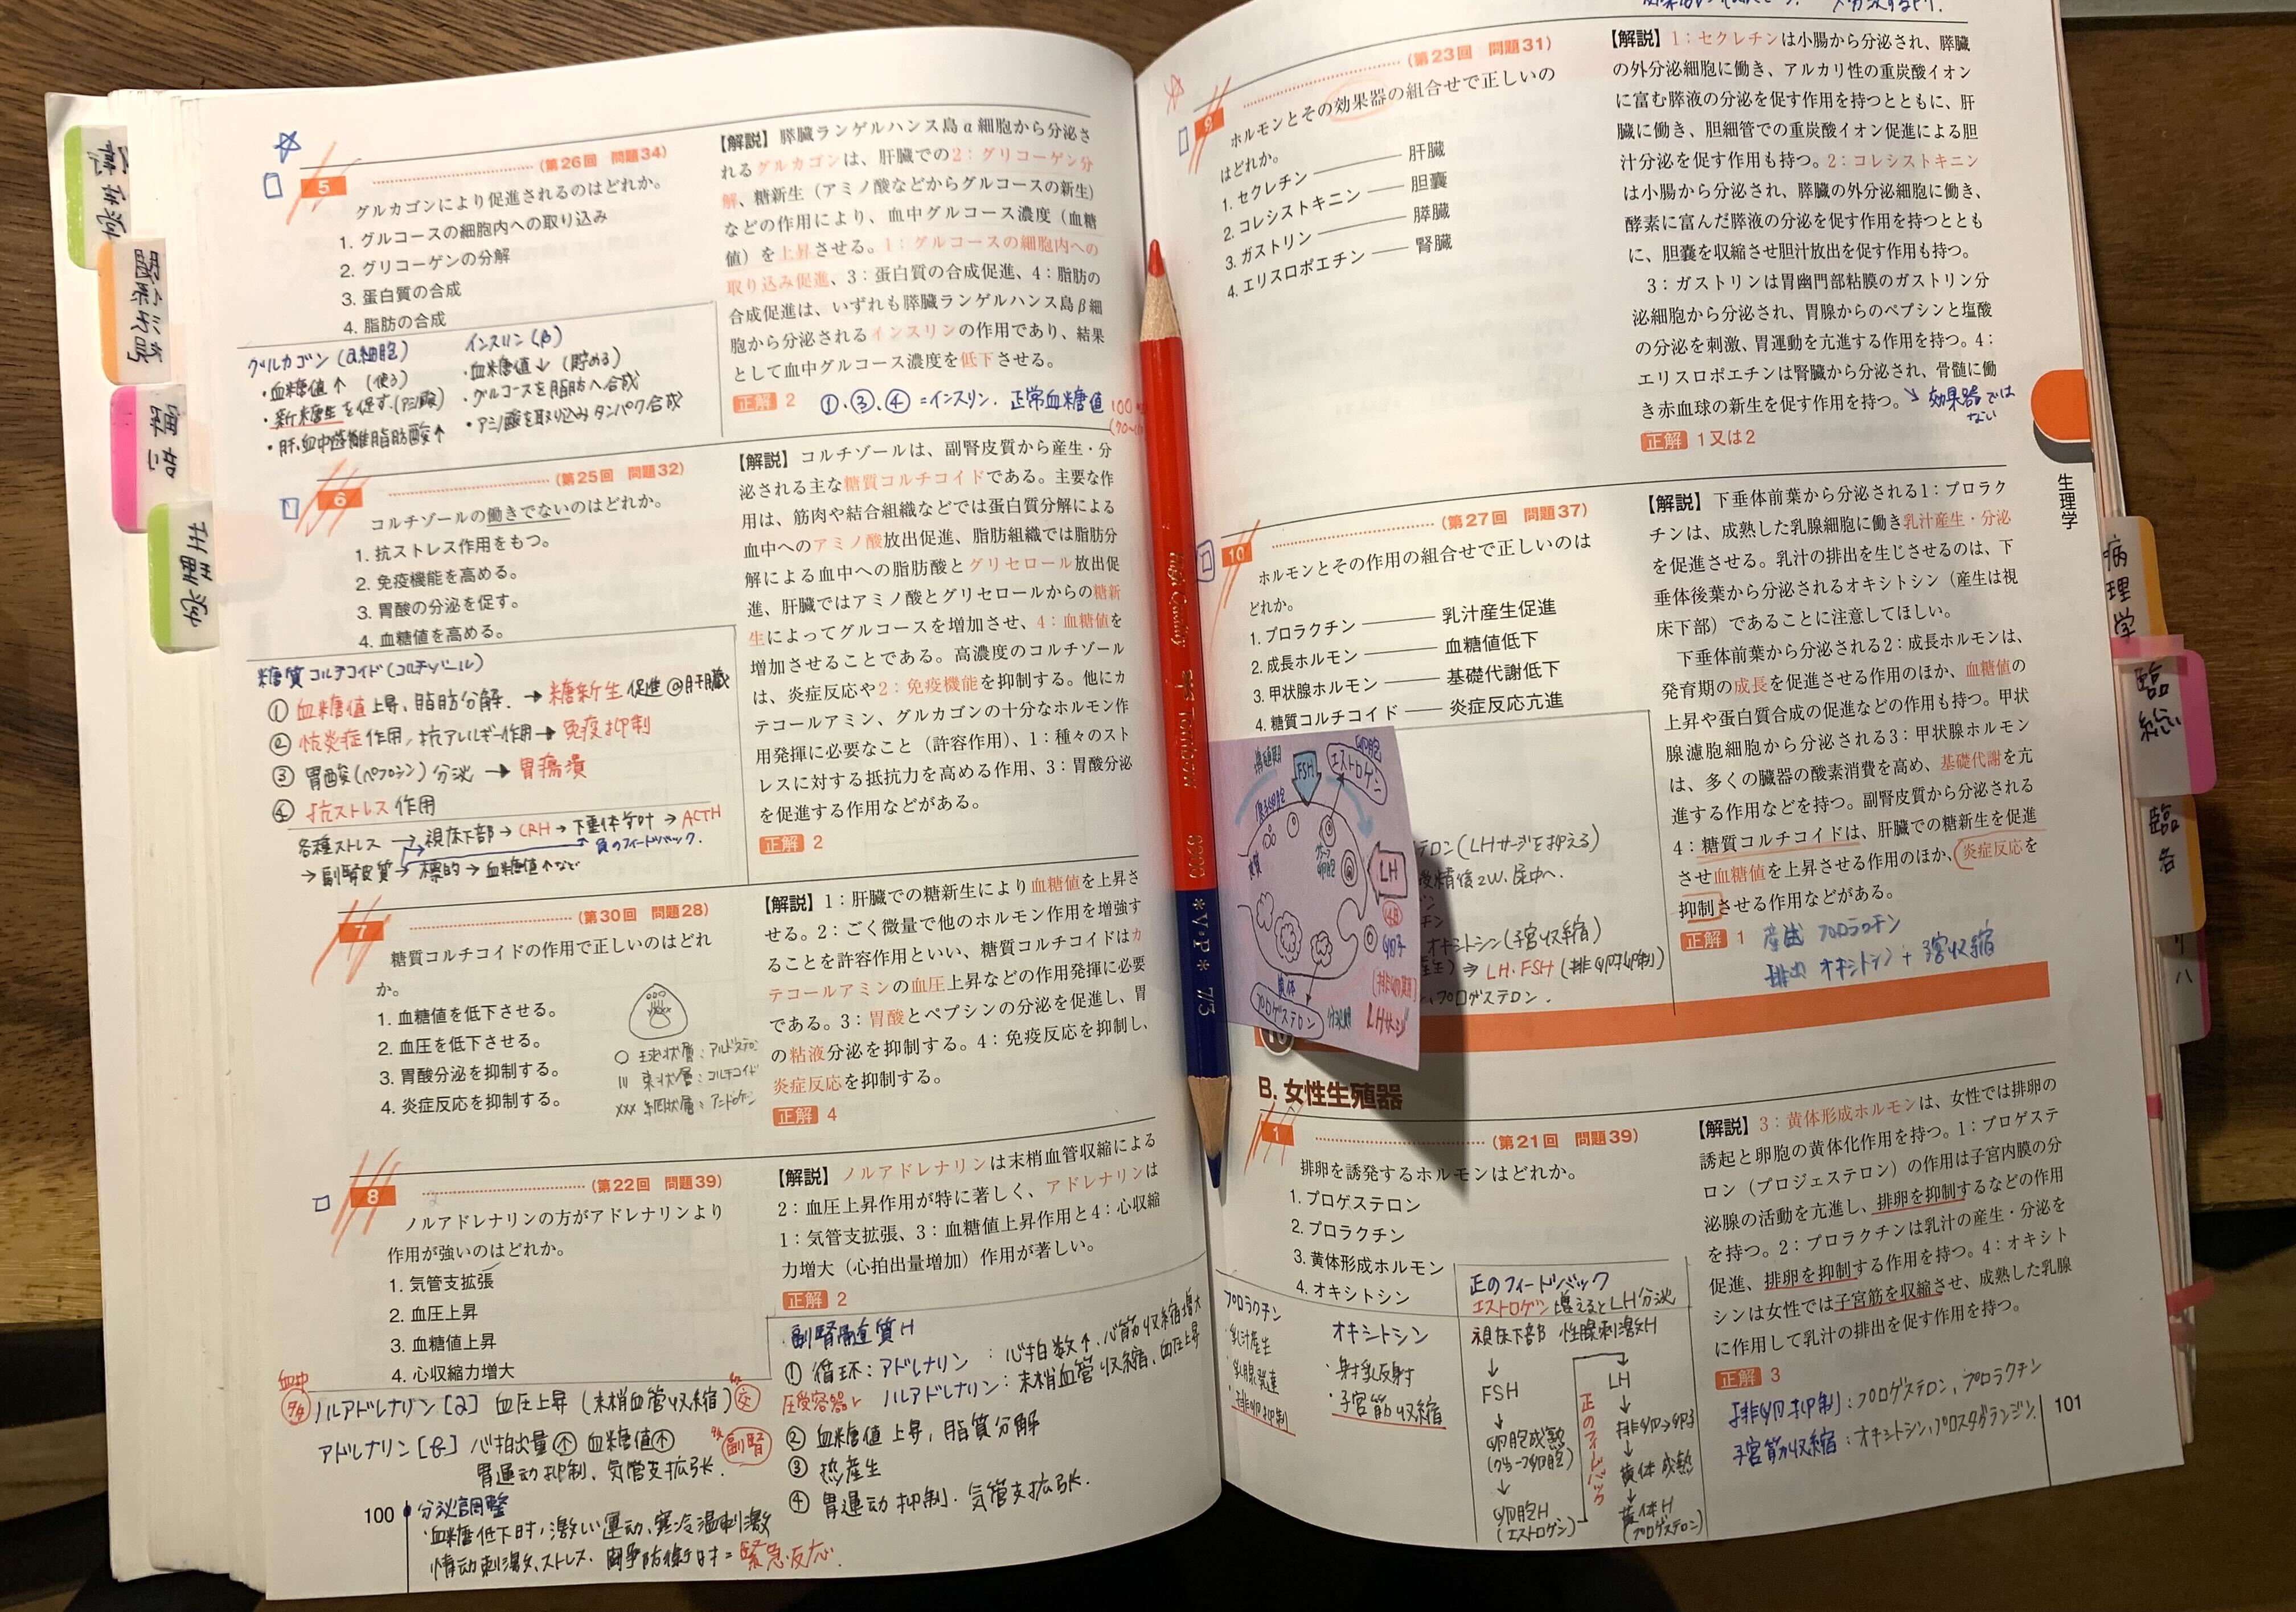 5 (第26回 問題34)
グルカゴンにより促進されるのはどれか。
1. グルコースの細胞内への取り込み
2. グリコーゲンの分解
3. 蛋白質の合成
4. 脂肪の合成
グルカゴン(α細胞)
・血糖値↑ (使う)
・新糖生を促す.(アミノ酸)
・肝.血中遊離脂肪酸↑
インスリン(β)
・血糖値↓ (貯める)
・グルコースを脂肪へ合成
・アミノ酸を取り込みタンパク合成
【解説】膵臓ランゲルハンス島α細胞から分泌さ
れるグルカゴンは、肝臓での2:グリコーゲン分
解、糖新生(アミノ酸などからグルコースの新生)
などの作用により、血中グルコース濃度(血糖
値)を上昇させる。1:グルコースの細胞内への
取り込み促進、3:蛋白質の合成促進、4:脂肪の
合成促進は、いずれも膵臓ランゲルハンス島β細
胞から分泌されるインスリンの作用であり、結果
として血中グルコース濃度を低下させる。
正解 2
①.③.④=インスリン. 正常血糖値 100
6 (第25回 問題32)
コルチゾールの働きでないのはどれか。
1. 抗ストレス作用をもつ。
2. 免疫機能を高める。
3. 胃酸の分泌を促す。
4. 血糖値を高める。
糖質コルチコイド(コルチゾール)
① 血糖値上昇,脂肪分解. → 糖新生促進@肝臓
② 抗炎症作用,抗アレルギー作用→免疫抑制
③ 胃酸(ペプシン)分泌 → 胃潰瘍
④ 抗ストレス作用
各種ストレス → 視床下部→CRH→下垂体前叶→ACTH
→副腎皮質→標的→血糖値↑など
負のフィードバック.
【解説】コルチゾールは、副腎皮質から産生・分
泌される主な糖質コルチコイドである。主要な作
用は、筋肉や結合組織などでは蛋白質分解による
血中へのアミノ酸放出促進、脂肪組織では脂肪分
解による血中への脂肪酸とグリセロール放出促
進、肝臓ではアミノ酸とグリセロールからの糖新
生によってグルコースを増加させ、4:血糖値を
増加させることである。高濃度のコルチゾール
は、炎症反応や2:免疫機能を抑制する。他にカ
テコールアミン、グルカゴンの十分なホルモン作
用発揮に必要なこと(許容作用)、1:種々のスト
レスに対する抵抗力を高める作用、3:胃酸分泌
を促進する作用などがある。
正解 2
7 (第30回 問題28)
糖質コルチコイドの作用で正しいのはどれ
か。
1. 血糖値を低下させる。
2. 血圧を低下させる。
3. 胃酸分泌を抑制する。
4. 炎症反応を抑制する。
○ 球状層:アルドステロン
III 束状層:コルチコイド
××× 網状層:アンドロゲン
【解説】1:肝臓での糖新生により血糖値を上昇さ
せる。2:ごく微量で他のホルモン作用を増強す
ることを許容作用といい、糖質コルチコイドはカ
テコールアミンの血圧上昇などの作用発揮に必要
である。3:胃酸とペプシンの分泌を促進し、胃
の粘液分泌を抑制する。4:免疫反応を抑制し、
炎症反応を抑制する。
正解 4
8 (第22回 問題39)
ノルアドレナリンの方がアドレナリンより
作用が強いのはどれか。
1. 気管支拡張
2. 血圧上昇
3. 血糖値上昇
4. 心収縮力増大
【解説】ノルアドレナリンは末梢血管収縮による
2:血圧上昇作用が特に著しく、アドレナリンは
1:気管支拡張、3:血糖値上昇作用と4:心収縮
力増大(心拍出量増加)作用が著しい。
正解 2
ノルアドレナリン[α] 血圧上昇 (末梢血管収縮) 交
アドレナリン[β] 心拍出量↑ 血糖値↑ 副腎
胃運动抑制、気管支拡張.
副腎髄質H
① 循环:アドレナリン:心拍数↑.心筋収縮増大
圧受容器 ノルアドレナリン:末梢血管収縮.血圧上昇
② 血糖値上昇,脂質分解
③ 熱産生
④ 胃運动抑制. 気管支拡張.
100
分泌官調整
・血糖低下时,激しい運动、寒冷温刺激
情动刺激,ストレス. 闘争防衛时=緊急反応.
9 (第23回 問題31)
ホルモンとその効果器の組合せで正しいの
はどれか。
1. セクレチン ――― 肝臓
2. コレシストキニン ―― 胆嚢
3. ガストリン ――― 膵臓
4. エリスロポエチン ―― 腎臓
【解説】1:セクレチンは小腸から分泌され、膵臓
の外分泌細胞に働き、アルカリ性の重炭酸イオン
に富む膵液の分泌を促す作用を持つとともに、肝
臓に働き、胆細管での重炭酸イオン促進による胆
汁分泌を促す作用も持つ。2:コレシストキニン
は小腸から分泌され、膵臓の外分泌細胞に働き、
酵素に富んだ膵液の分泌を促す作用を持つととも
に、胆嚢を収縮させ胆汁放出を促す作用も持つ。
3:ガストリンは胃幽門部粘膜のガストリン分
泌細胞から分泌され、胃腺からのペプシンと塩酸
の分泌を刺激、胃運動を亢進する作用を持つ。4:
エリスロポエチンは腎臓から分泌され、骨髄に働
き赤血球の新生を促す作用を持つ。
効果器では
ない
正解 1又は2
10 (第27回 問題37)
ホルモンとその作用の組合せで正しいのは
どれか。
1. プロラクチン ――― 乳汁産生促進
2. 成長ホルモン ――― 血糖値低下
3. 甲状腺ホルモン ――― 基礎代謝低下
4. 糖質コルチコイド ―― 炎症反応亢進
【解説】下垂体前葉から分泌される1:プロラク
チンは、成熟した乳腺細胞に働き乳汁産生・分泌
を促進させる。乳汁の排出を生じさせるのは、下
垂体後葉から分泌されるオキシトシン(産生は視
床下部)であることに注意してほしい。
下垂体前葉から分泌される2:成長ホルモンは、
発育期の成長を促進させる作用のほか、血糖値の
上昇や蛋白質合成の促進などの作用も持つ。甲状
腺濾胞細胞から分泌される3:甲状腺ホルモン
は、多くの臓器の酸素消費を高め、基礎代謝を亢
進する作用などを持つ。副腎皮質から分泌される
4:糖質コルチコイドは、肝臓での糖新生を促進
させ血糖値を上昇させる作用のほか、炎症反応を
抑制させる作用などがある。
正解 1
産生 プロラクチン
排出 オキシトシン + 子宮収縮
FSH
エストロゲン
LH
黄体
プロゲステロン
LHサージ
テロン(LHサージを抑える)
受精後2W.
オキシトシン(子宮収縮)
⇒ LH.FSH (排卵抑制)
プロゲステロン.
B. 女性生殖器
1 (第21回 問題39)
排卵を誘発するホルモンはどれか。
1. プロゲステロン
2. プロラクチン
3. 黄体形成ホルモン
4. オキシトシン
【解説】3:黄体形成ホルモンは、女性では排卵の
誘起と卵胞の黄体化作用を持つ。1:プロゲステ
ロン(プロジェステロン)の作用は子宮内膜の分
泌腺の活動を亢進し、排卵を抑制するなどの作用
を持つ。2:プロラクチンは乳汁の産生・分泌を
促進、排卵を抑制する作用を持つ。4:オキシト
シンは女性では子宮筋を収縮させ、成熟した乳腺
に作用して乳汁の排出を促す作用を持つ。
正解 3
排卵抑制:プロゲステロン,プロラクチン
子宮筋収縮:オキシトシン,プロスタグランジン.
プロラクチン
・乳汁産生
・乳腺発達
・排卵抑制
オキシトシン
・射乳反射
・子宮筋収縮
正のフィードバック
エストロゲン増えるとLH分泌
視床下部 性腺刺激H
FSH
卵胞成熟
(グラーフ卵胞)
卵胞H
(エストロゲン)
正のフィードバック
LH
排卵→卵子
黄体成熟
黄体H
(プロゲステロン)
101
生理学
病理学
臨総
臨各
リハ